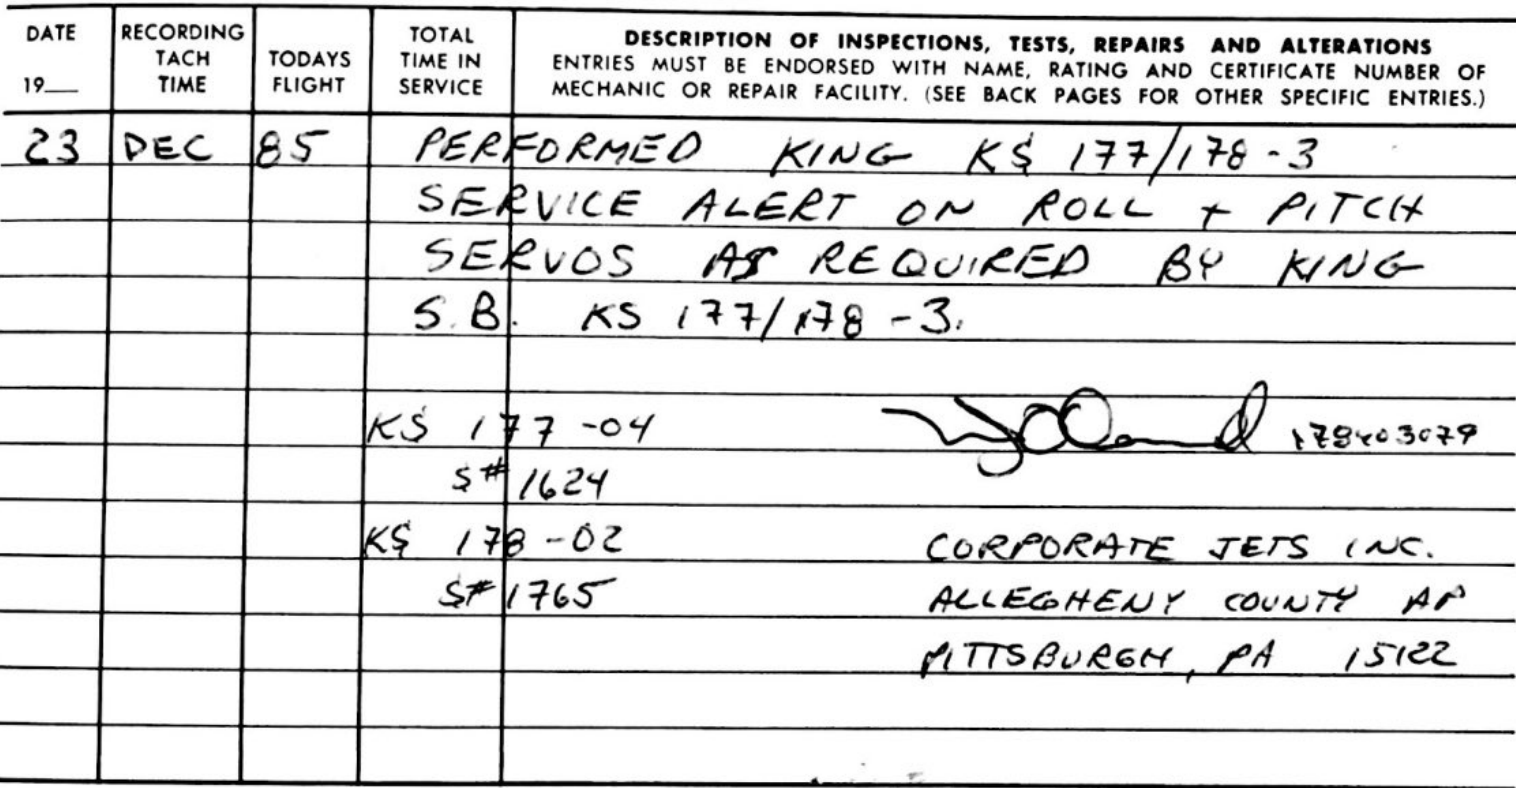 DATE
19__
RECORDING
TACH
TIME
TODAYS
FLIGHT
TOTAL
TIME IN
SERVICE
DESCRIPTION OF INSPECTIONS, TESTS, REPAIRS AND ALTERATIONS
ENTRIES MUST BE ENDORSED WITH NAME, RATING AND CERTIFICATE NUMBER OF
MECHANIC OR REPAIR FACILITY. (SEE BACK PAGES FOR OTHER SPECIFIC ENTRIES.)
23 DEC 85 PERFORMED KING KS 177/178-3
SERVICE ALERT ON ROLL + PITCH
SERVOS AS REQUIRED BY KING
S.B. KS 177/178-3.
KS 177-04 178403079
S# 1624
KS 178-02 CORPORATE JETS INC.
S# 1765 ALLEGHENY COUNTY AP
PITTSBURGH, PA 15122